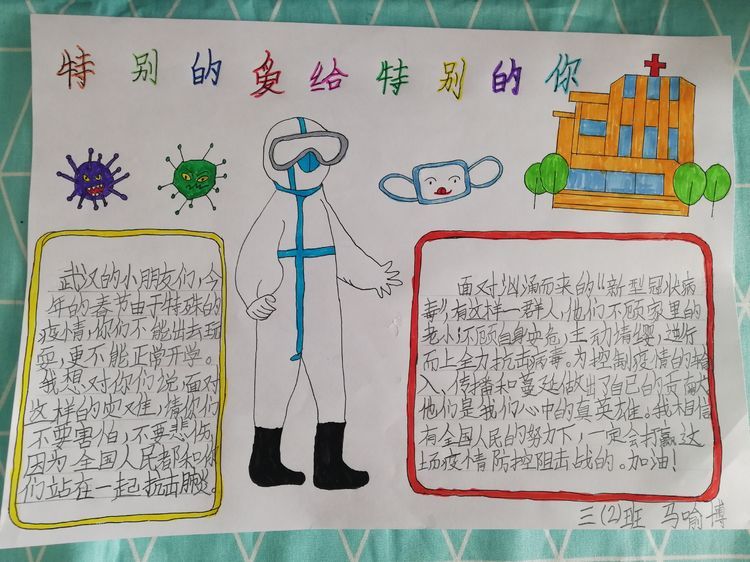 特别的爱给特别的你
武汉的小朋友们,今
年的春节由于特殊的
疫情,你们不能出去玩
耍,更不能正常开学。
我想对你们说,面对
这样的灾难,请你们
不要害怕,不要悲伤,
因为全国人民都和你
们站在一起抗击肺炎。
面对汹涌而来的“新型冠状病
毒”,有这样一群人,他们不顾家里的
老小,不顾自身安危,主动请缨,逆行
而上全力抗击病毒。为控制疫情的输
入、传播和蔓延做出了自己的贡献
他们是我们心中的真英雄。我相信
有全国人民的努力下,一定会打赢这
场疫情防控阻击战的。加油!
三(2)班 马喻博